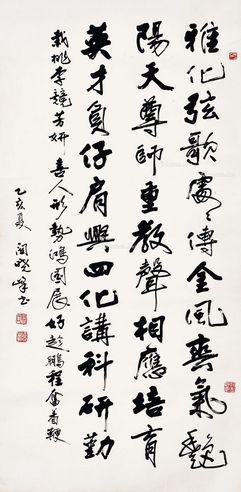 雅化弦歌處々傳金風爽氣艷
陽天尊師重教聲相應培育
英才負仔肩興四化講科研勤
栽桃李競芳妍喜人形勢鴻圖展好趁鵬程奮着鞭
乙亥夏 閻曉峰书